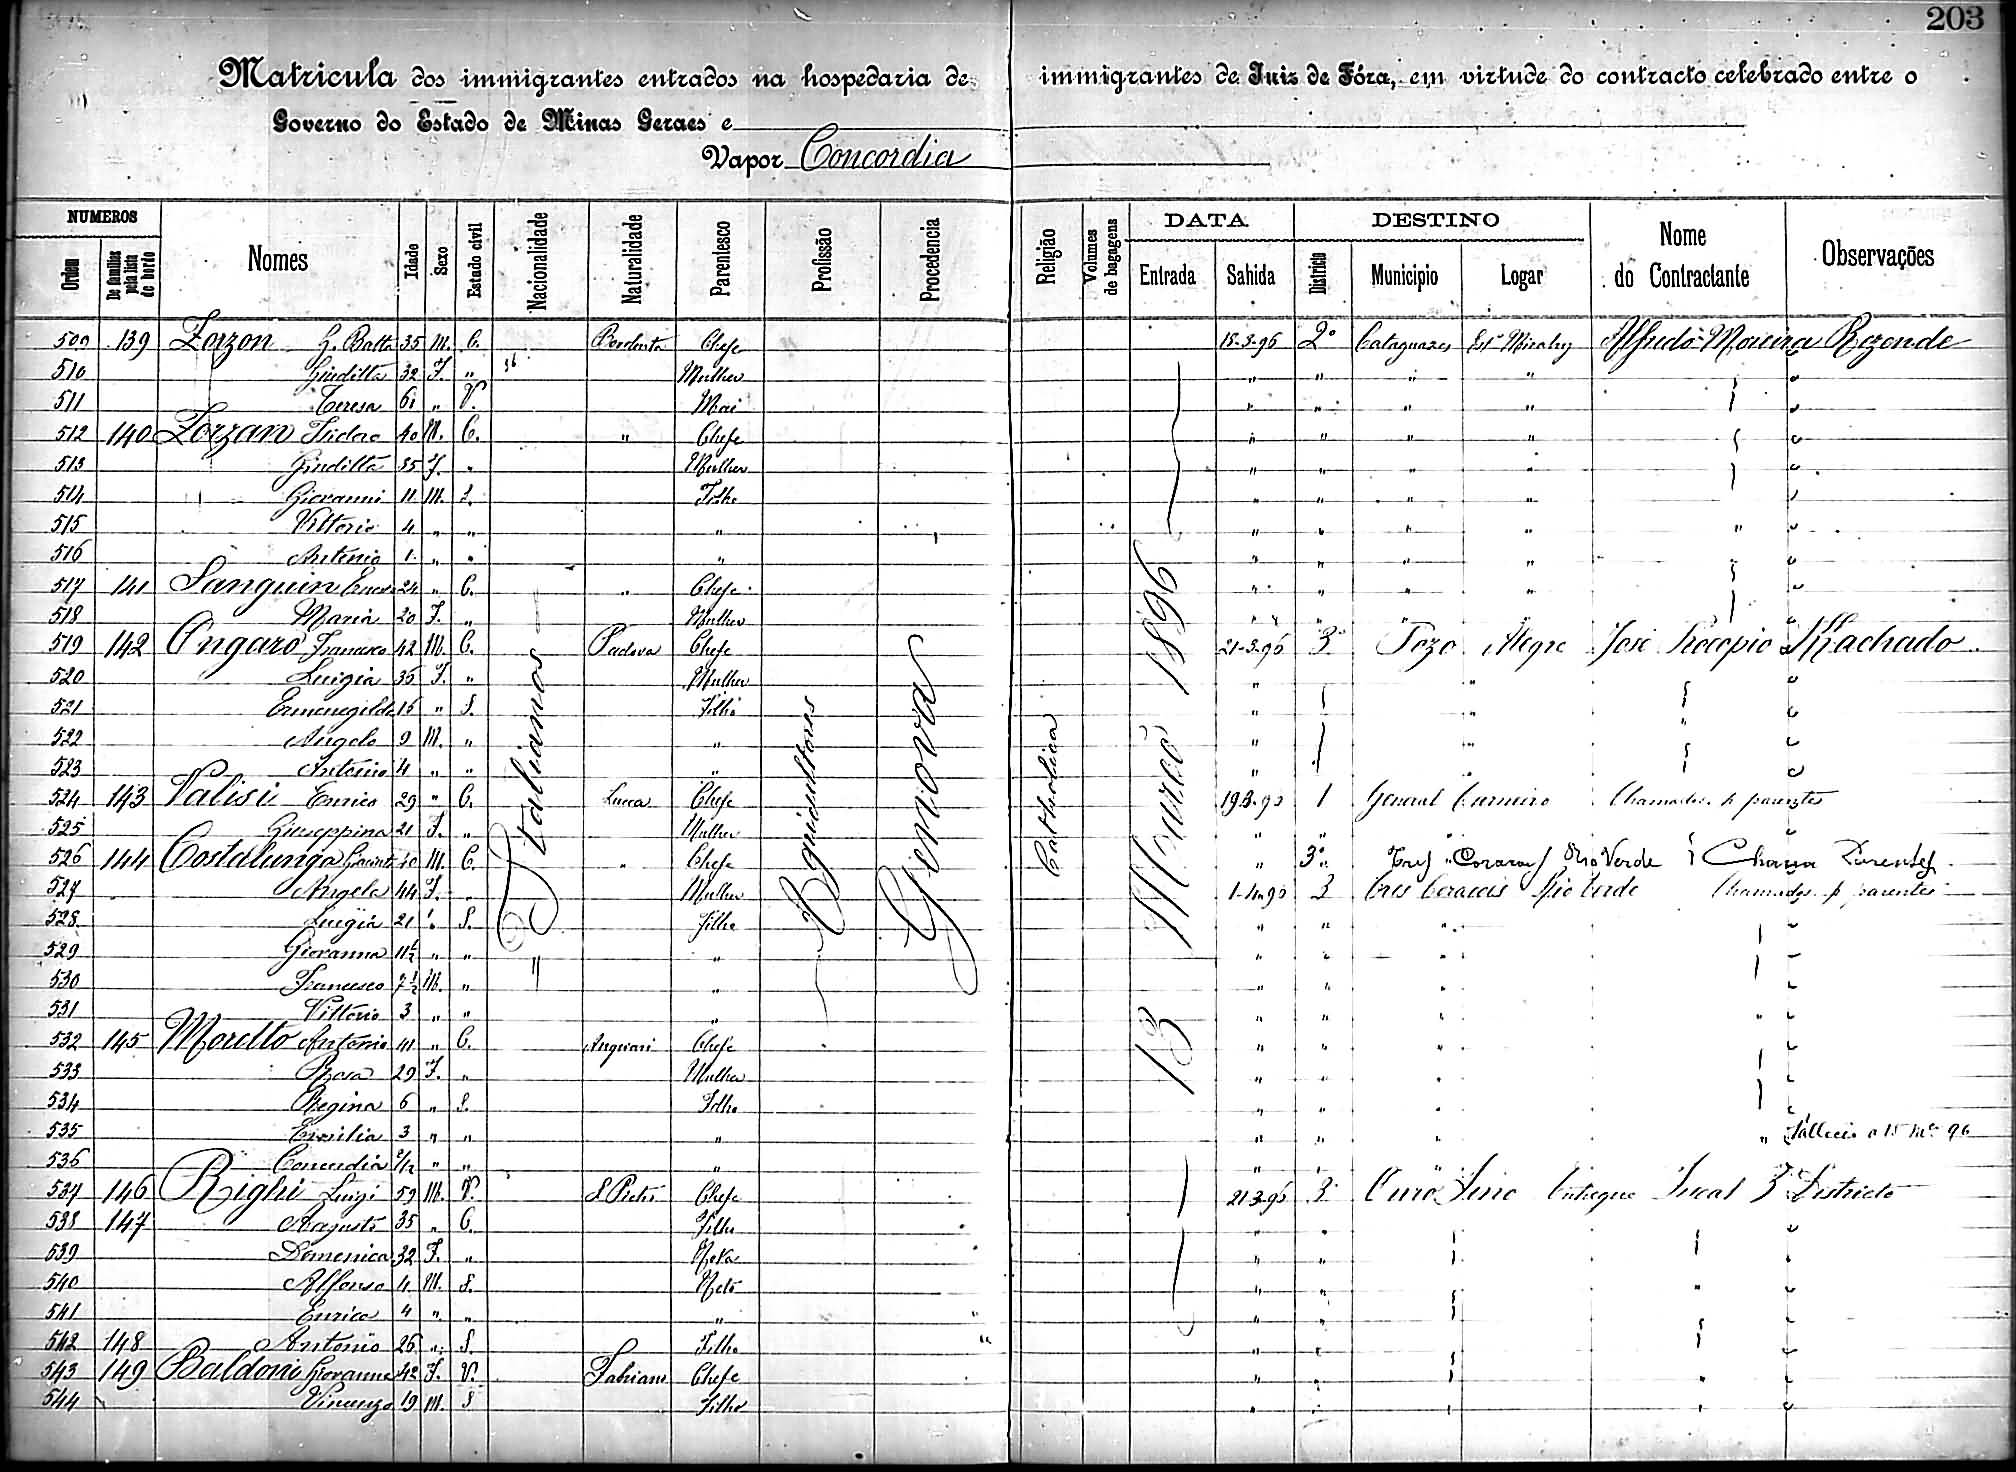 203
Matricula dos immigrantes entrados na hospedaria de immigrantes de Juiz de Fóra, em virtude do contracto celebrado entre o
Governo do Estado de Minas Geraes e
Vapor Concordia
NUMEROS DATA DESTINO
Ordem De familias pela lista de bordo Nomes Idade Sexo Estado civil Nacionalidade Naturalidade Parentesco Profissão Procedencia Religião Volumes de bagagens Entrada Sahida Districto Municipio Logar Nome do Contractante Observações
Italianos Agricultores Genova Catholica 13 Março 1896
509 139 Zorzon G. Batta 35 M. C. Chefe 18-3-96 2º Cataguazes Est. Mirahy Alfredo Moreira Rezende
510 Giuditta 32 F. " 36 Mulher " " " "
511 Teresa 61 " V. Mai " " " "
512 140 Zorzan Isidoro 40 M. C. " Chefe " " " "
513 Giuditta 35 F. " Mulher " " " "
514 Giovanni 11 M. S. Filho " " " "
515 Vittorio 4 " " " " " " " "
516 Antonio 1 " " " " " " "
517 141 Sanguin 24 " C. " Chefe " " "
518 Maria 20 F. " Mulher " " " "
519 142 Ongaro Francesco 42 M. C. Padova Chefe 21-3-96 3º Pozo Alegre José Procopio Machado
520 Luigia 35 F. " Mulher " "
521 Ermenegilda 15 " S. Filho " "
522 Angelo 9 M. " " " "
523 Antonio 4 " " " "
524 143 Valisi Enrico 29 " C. Lucca Chefe 1 General Carneiro Chamados p parentes
525 Giuseppina 21 F. " Mulher " "
526 144 Costalunga M. C. " Chefe " 3º Tres Coraçoes Rio Verde Chama Parentes
527 Angela 44 F. " Mulher 3 Tres Coracois Rio Verde Chamados p parentes
528 Luigia 21 " S. Filho " " "
529 Giovanna 11½ " " " " " "
530 Francesco 7½ M. " " " " "
531 Vittorio 3 " " " " " "
532 145 Moretto Antonio 41 " C. Angiari Chefe " " "
533 Rosa 29 F. " Mulher " " "
534 Regina 6 " S. Filho " " "
535 3 " " " " " " " Falleceu a 15 96
536 " " " " "
537 146 Righi Luigi 59 M. V. S Pietro Chefe 21-3-96 3º Ouro Fino Entregue Fiscal 3º Districto
538 147 Augusto 35 " C. Filho " "
539 Domenica 32 F. " Nora " "
540 Alfonso 4 M. S. Neto " "
541 Enrico 4 " " " " "
542 148 Antonio 26 " S. Filho " "
543 149 Baldoni Giovanna 42 F. V. Fabriano Chefe " "
544 Vincenzo 19 M. S Filho " "